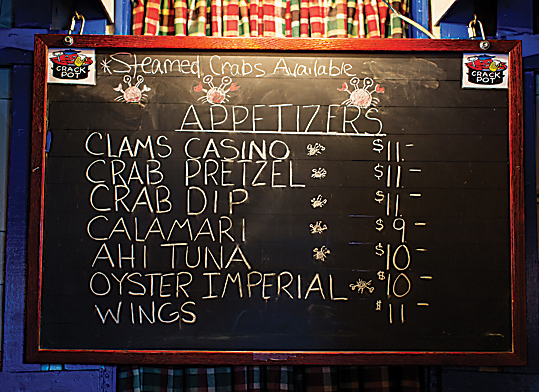 *Steamed Crabs Available
CRACK
POT
CRACK
POT
APPETIZERS
CLAMS CASINO $11.-
CRAB PRETZEL $11.-
CRAB DIP $11.-
CALAMARI $9-
AHI TUNA $10-
OYSTER IMPERIAL $10-
WINGS $11-